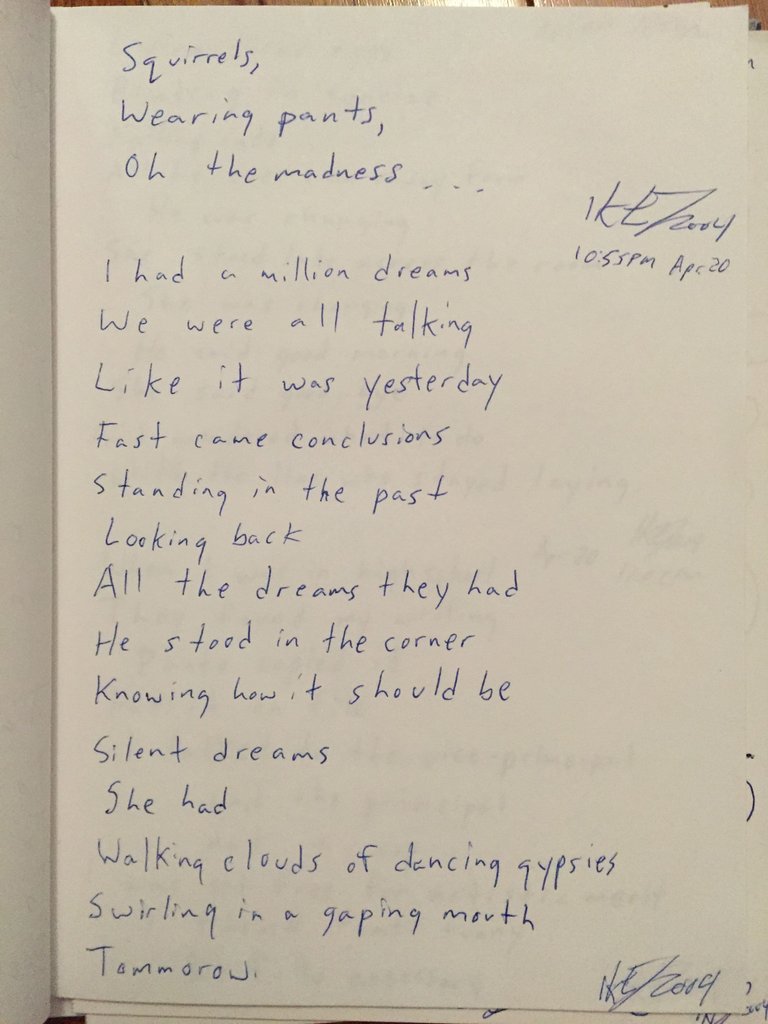 Squirrels,
Wearing pants,
Oh the madness ....
IKE/2004
10:55pm Apr. 20
I had a million dreams
We were all talking
Like it was yesterday
Fast came conclusions
Standing in the past
Looking back
All the dreams they had
He stood in the corner
Knowing how it should be
Silent dreams
She had
Walking clouds of dancing gypsies
Swirling in a gaping mouth
Tommorow.
IKE/2004